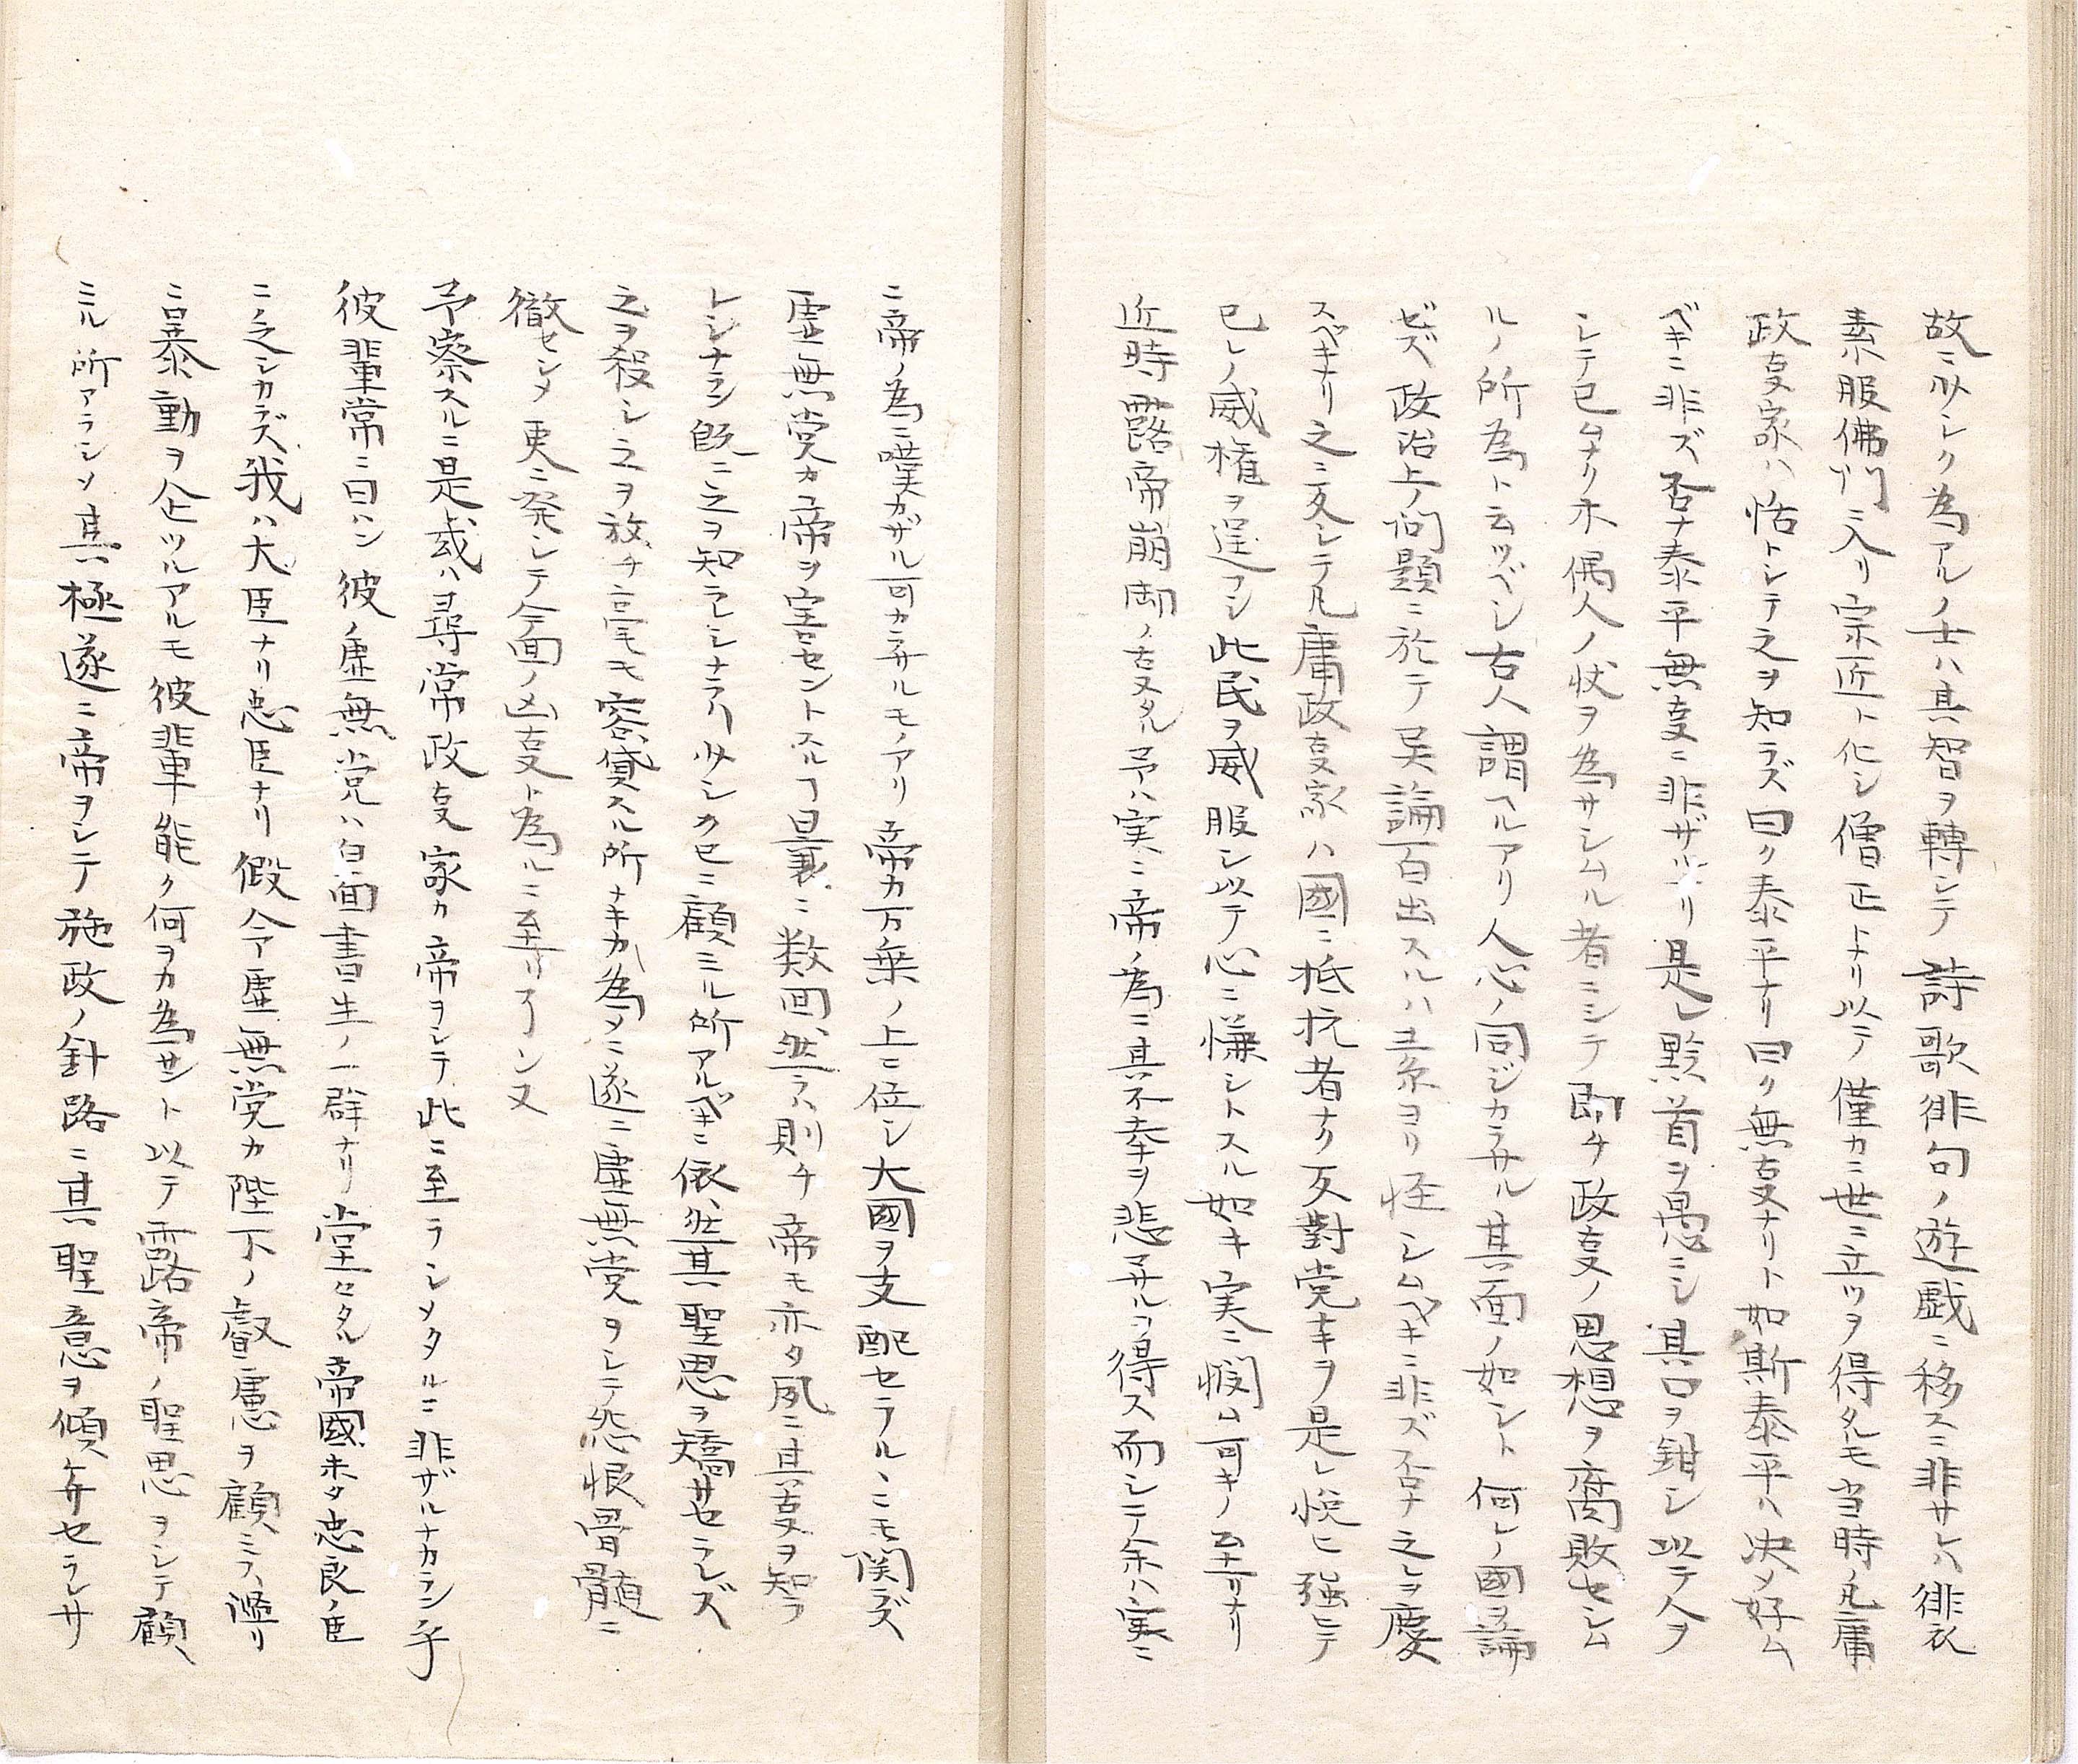 故ニ少シク為アルノ士ハ其智ヲ轉シテ詩歌徘句ノ遊戯ニ移スニ非サレハ徘衣
素服佛門ニ入リ宗匠ト化シ僧正トナリ以テ僅カニ世ニ立ツヲ得タルモ当時ノ凡庸
政事家ハ恬トシテ之ヲ知ラズ曰ク泰平ナリ曰ク無事ナリト如斯泰平ハ决ノ好ム
ベキニ非ズ否ナ泰平無事ニ非ザルナリ是レ黔首ヲ愚ニシ其口ヲ鉗シ以テ人ヲ
シテ已ムナリ木偶人ノ状ヲ為サシムル者ニシテ即チ政事ノ思想ヲ腐敗セシム
ルノ所為ト云ツベシ古人謂ヘルアリ人心ノ同ジカラサル其面ノ如シト何レノ國ヲ論
ゼズ政治上ノ問題ニ於テ異論百出スルハ素ヨリ怪シムベキニ非ズ否ナ之レヲ慶
スベキナリ之ニ反シテ凡庸政事家ハ國ニ抵抗者ナク反對党ナキヲ是レ悦ヒ強ヒテ
己レノ威権ヲ逞フシ此民ヲ威服シ以テ心ニ慊シトスル如キ実ニ憫ム可キノ至リナリ
近時露帝崩御ノ事タル予ハ実ニ帝ノ為ニ其不幸ヲ悲マサルヲ得ス而シテ余ハ実ニ
ニ帝ノ為ニ嘆カザル可カラサルモノアリ帝カ万乗ノ上ニ位シ大國ヲ支配セラルヽニモ関ズ
虚無党カ帝ヲ害セントスルヿ曩ニ数回然ラハ則チ帝モ亦タ夙ニ其事ヲ知ラ
レシナラン既ニ之ヲ知ラレシナラハ少シクモニ顧ミル所アルベキニ依然其聖思ヲ矯サセラレズ
之ヲ殺シ之ヲ放チ毫モ容貸スル所ナキカ為メニ遂ニ虚無党ヲシテ怨恨骨髄ニ
徹セシメ更ニ発シテ今回ノ凶事ト為ルニ至リナン又
予察スルニ是或ハ尋常政事家カ帝ヲシテ此ニ至ラシメタルニ非ザルナカラン乎
彼輩常ニ曰ハン彼ノ虚無党ハ白面書生ノ一群ナリ堂々タル帝國ホタ忠良ノ臣
ニノ之シカラズ我ハ大臣ナリ忠臣ナリ假令虚無党カ陛下ノ叡慮ヲ顧ミス濫リ
ニ暴動ヲ企ツルアルモ彼輩能ク何ヲカ為サント以テ露帝ノ聖思ヲシテ顧
ミル所アラシメ其極遂ニ帝ヲシテ施政ノ針路ニ其聖意ヲ傾ケサセラレサ